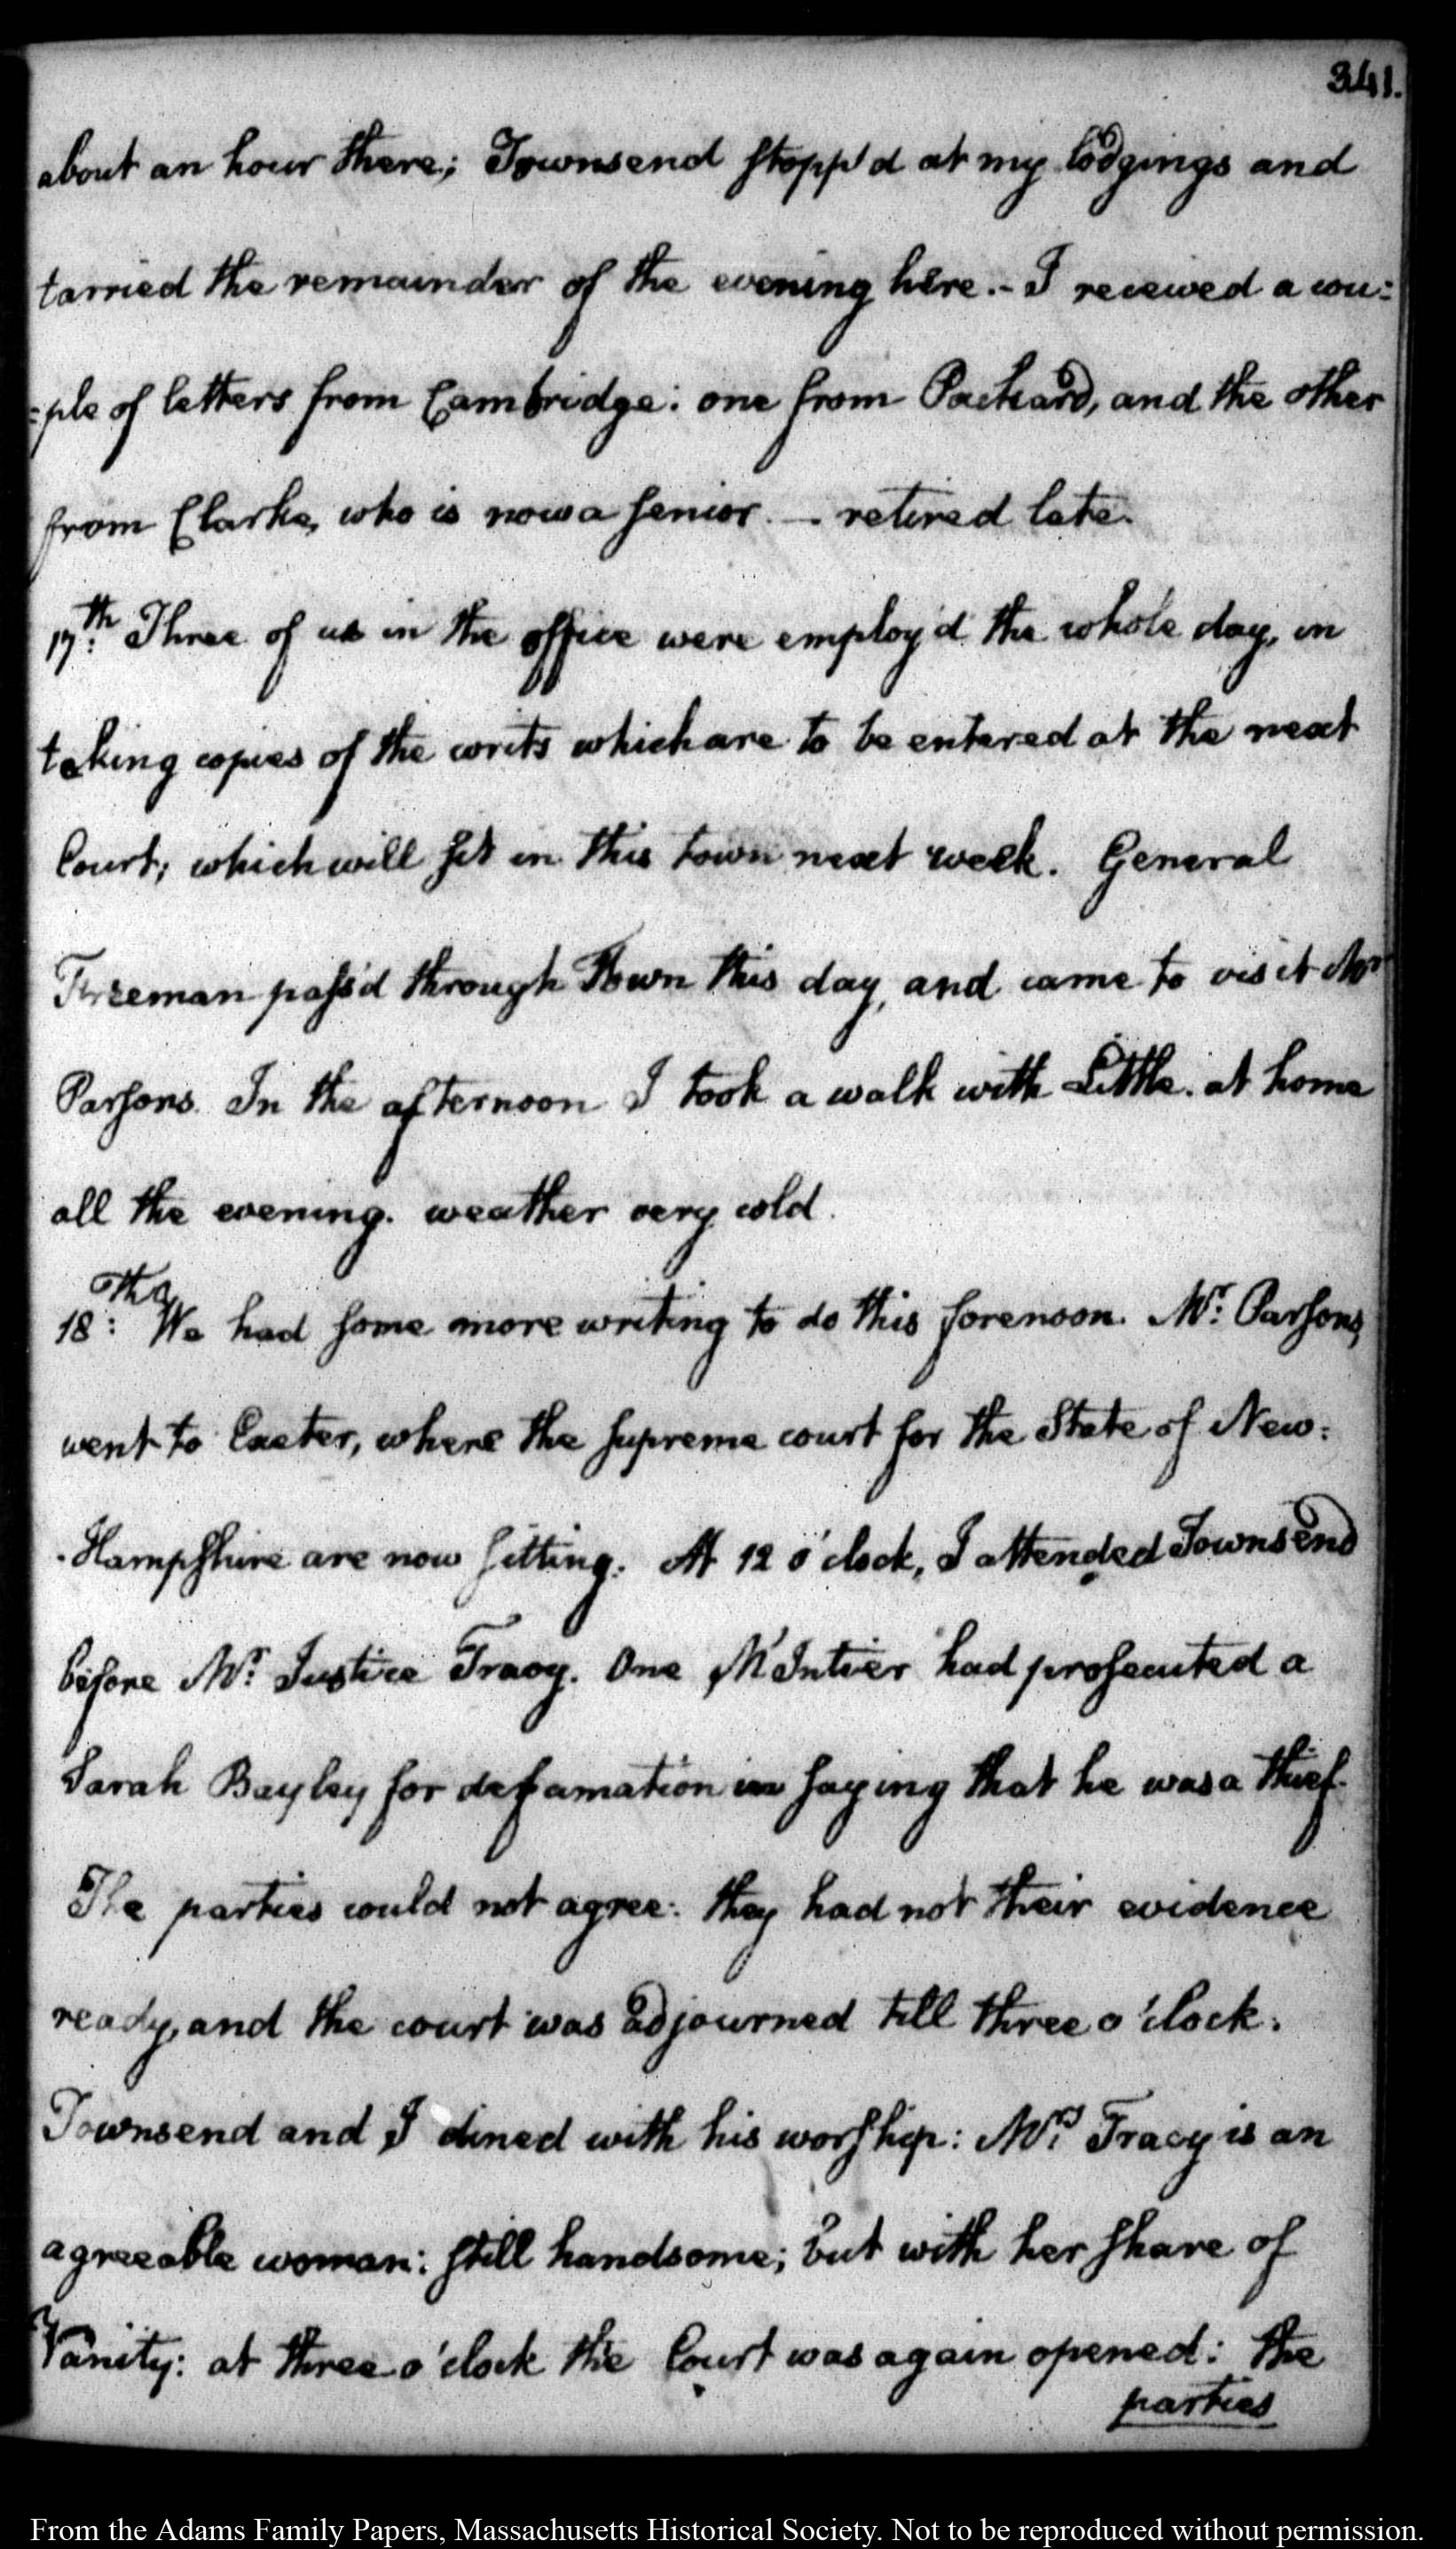 341.
about an hour there; Townsend stopp'd at my lodgings and
tarried the remainder of the evening here.- I received a cou:
:ple of letters from Cambridge: one from Packard, and the other
from Clarke, who is now a senior. — retired late.
17th: Three of us in the office were employ'd the whole day, in
taking copies of the writs which are to be entered at the next
Court; which will sit in this town next week. General
Freeman pass'd through Town this day, and came to visit Mr
Parsons. In the afternoon I took a walk with Little. at home
all the evening. weather very cold.
18th: We had some more writing to do this forenoon. Mr: Parsons,
went to Exeter, where the supreme court for the State of New-
-Hampshire are now sitting. At 12 o'clock, I attended Townsend
before Mr: Justice Tracy. One McIntier had prosecuted a
Sarah Bayley for defamation in saying that he was a thief.
The parties could not agree: they had not their evidence
ready, and the court was adjourned till three o'clock.
Townsend and I dined with his worship: Mrs: Tracy is an
agreeable woman: still handsome; but with her share of
Vanity: at three o'clock the Court was again opened: the
parties
From the Adams Family Papers, Massachusetts Historical Society. Not to be reproduced without permission.